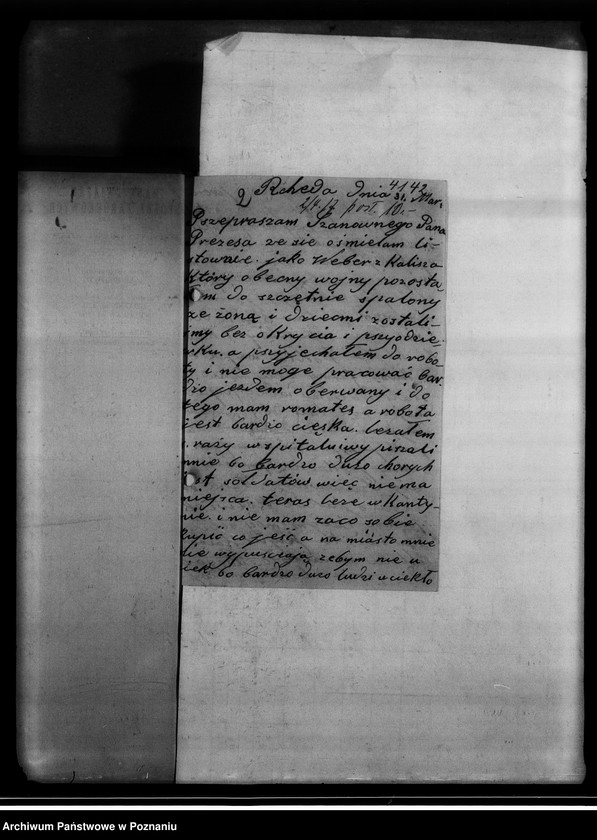 4142
Rcheda dnia 31. Mar.
2/4.17 post. 10.-
Pszepraszam Szanownego Pana
Prezesa ze sie ośmielam li-
stownie. jako Weber z Kalisza
który obecny wojny pozosta
łem do szczętnie spalony
ze żoną i dziecmi zostali-
smy bez okrycia i pszyodzie.
wku. a pszyjechałem do robo-
ty i nie moge pracować bar.
dzo jezdem oberwany i do
tego mam romates a robota
jest bardzo cięska. lezałem
razy w spitalu i wypisali
mnie bo bardzo duzo chorych
jest soldatów. więc niema
miejsca. teras leze w Kanty-
nie. i nie mam zaco sobie
kupić co jeść a na miásto mnie
nie wypuscają zebym nie u
ciek bo bardzo duzo ludzi uciekło
Archiwum Państwowe w Poznaniu